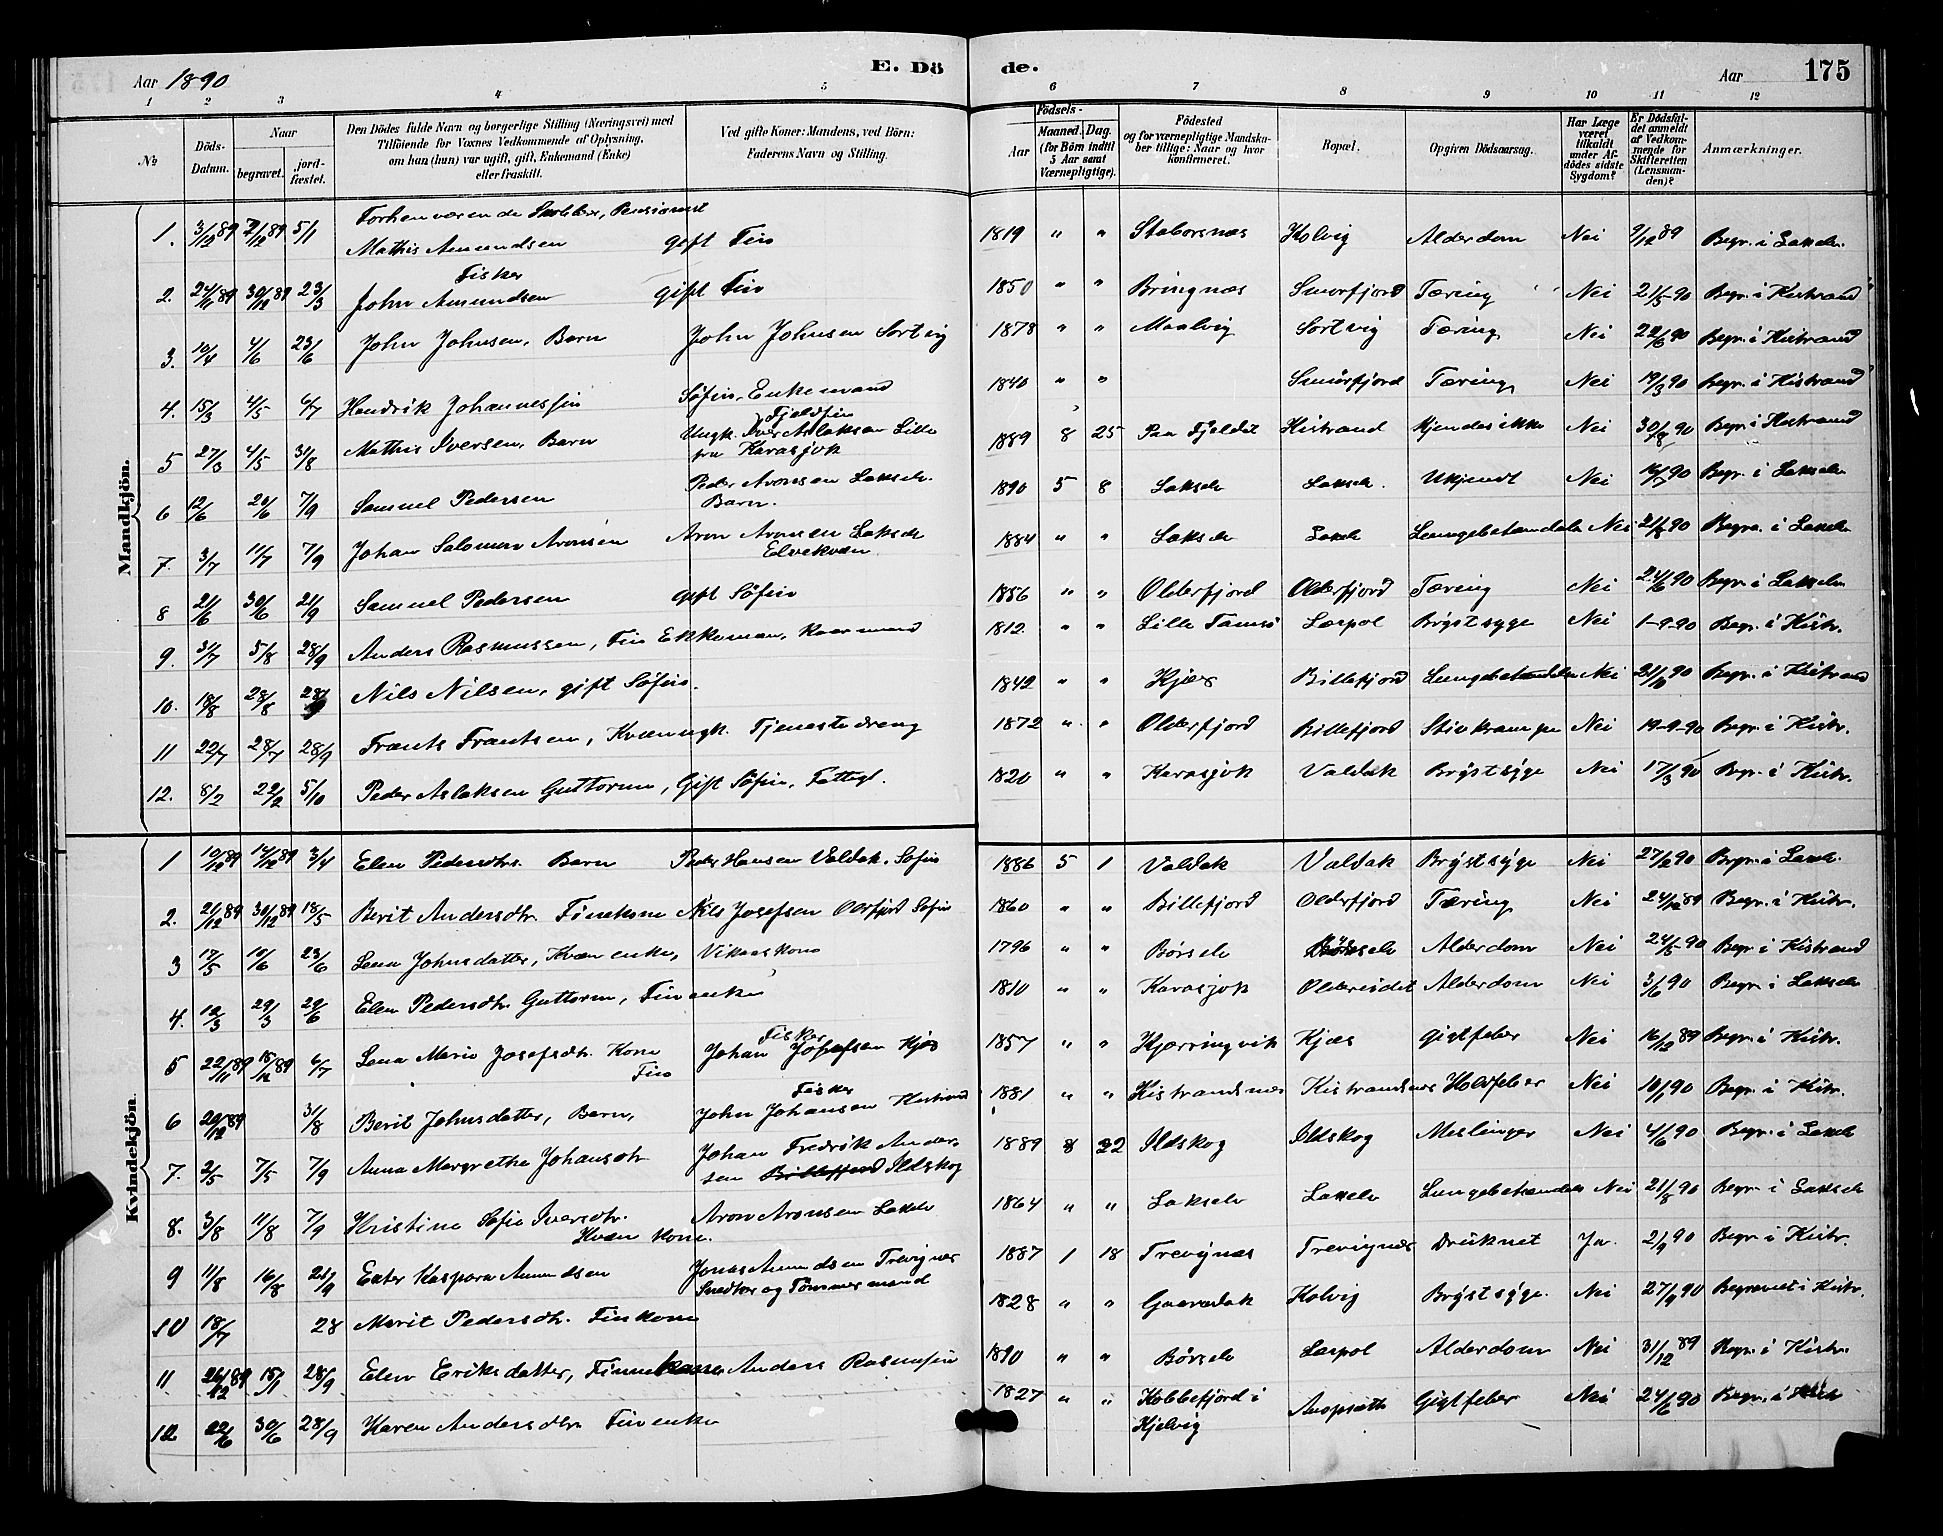 Aar 1890 E. Dö de. Aar 175
1 2 3 4 5 6 7 8 9 10 11 12
№ Döds-Datum. Naar begravet. jord-fæstet. Den Dödes fulde Navn og borgerlige Stilling (Næringsvei) med Tilföiende for Voxnes Vedkommende af Oplysning, om han (hun) var ugift, gift, Enkemand (Enke) eller fraskilt. Ved gifte Koner: Mandens, ved Börn: Faderens Navn og Stilling. Födsels- Aar Maaned. Dag. (for Börn indtil 5 Aar samt Værnepligtige). Födested og for værnepligtige Mandskaber tillige: Naar og hvor konfirmeret. Bopæl. Opgiven Dödsaarsag. Har Læge været tilkaldt under Afdödes sidste Sygdom? Er Dödsfaldet anmeldt af Vedkommende for Skifteretten (Lensmanden)? Anmærkninger.
Mandkjön.
1. 3/12 89 7/12 89 5/1 Forhenværende Snedker, Pensionist
Mathis Amundsen gift Fin 1819 " " Staborsnæs Kolvig Alderdom Nei 9/12 89 Begr. i Lakselv.
Fisker
2. 24/11 89 30/12 89 23/3 John Amundsen gift Fin 1850 " " Bringnæs Smørfjord Tæring Nei 21/3 90 Begr. i Kistrand
3. 10/4 4/6 23/6 John Johnsen, Barn John Johnsen Sortvig 1878 " " Maalvig Sortvig Tæring Nei 22/6 90 Begr. i Kistrand
4. 15/3 4/5 6/7 Hendrik Johannessen Søfin, Enkemand 1840 " " Smørfjord Tæring Nei 19/3 90 Begr. i Kistrand
5 27/3 4/5 31/8 Mathis Iversen, Barn Ungk. Fjeldfin Iver Aslaksen Lille fra Karasjok 1889 8 25 Paa Fjeldet Kistrand Kjendes ikke Nei 30/8 90 Begr. i Kistrand
6 12/6 20/6 7/9 Samuel Pedersen Peder Aronsen Lakselv. Barn. 1890 5 8 Lakselv Lakselv. Ukjendt Nei 16/7 90 Begr. i Lakselv
7. 3/7 11/7 7/9 Johan Salomon Aronsen Aron Aronsen Lakselv Elvekvæn 1884 " " Lakselv Lakselv Lungebetændelse Nei 21/8 90 Begr. i Lakselv
8 21/6 30/6 21/9 Samuel Pedersen gift Søfin 1856 " " Olderfjord Olderfjord Tæring Nei 24/6 90 Begr. i Lakselv
9. 31/7 5/8 28/9 Anders Rasmussen, Fin Enkeman, Kaarmand 1812. " " Lille Tamsø Læspol Brystsyge Nei 1-9-90 Begr. i Kistr.
10. 18/8 28/8 28/9 Nils Nilsen, gift Søfin. 1842 " " Kjæs Billefjord Lungebetændelse Nei 21/9 90 Begr. i Kistrand
11 22/7 28/7 28/9 Frants Frantsen, Kvæn ugk. Tjenestedreng 1872 " " Olderfjord Billefjord Stivkrampe Nei 19-9-90 Begr. i Kistr.
12. 8/2 22/2 5/10 Peder Aslaksen Guttorm, Gift Søfin. Fattigl. 1820 " " Karasjok Valdak Brystsyge Nei 17/3 90 Begr. i Kistr.
Kvindekjön.
1 10/12 89 14/12 89 3/4 Elen Pedersdtr. Barn Peder Hansen Valdak. Søfin 1886 5 1 Valdak Valdak Brystsyge Nei 27/2 90 Begr. i Lakselv.
2. 21/12 89 30/12 89 18/5 Berit Andersdtr. Finekone Nils Josefsen Olderfjord Søfin 1860 " " Billefjord Olderfjord Tæring Nei 24/12 89 Begr. i Kistr.
3 17/5 10/6 23/6 Lena Johnsdatter, Kvæn enke, Vikaaskone 1796 " " Børselv Børselv Alderdom Nei 24/5 90 Begr. i Kistrand
4. 12/3 29/3 29/6 Elen Pedersdtr. Guttorm, Fin enke 1810 " " Karasjok Oldereidet Alderdom Nei 3/6 90 Begr. i Lakselv
5 22/11 89 15/12 89 6/7 Lena Marie Josefsdtr. Kone Fin Fisker Johan Josefsen Kjæs 1857 " " Kjærringvik Kjæs Gigtfeber Nei 16/12 89 Begr. i Kistr.
6 20/12 89 31/8 Berit Johnsdatter, Barn, Fisker John Johansen Kistrand 1881 " " Kistrandsnæs Kistrandsnæs Holdfeber Nei 10/1 90 Begr. i Kistr.
7. 2/5 7/5 7/9 Anna Margrethe Johansdtr Johan Fredrik Andersen Billefjord Ildskog 1889 8 22 Ildskog Ildskog Meslinger Nei 4/6 90 Begr. i Lakselv
8. 3/8 11/8 7/9 Kristine Sofie Iversdtr. Kvæn Kone. Aron Aronsen Lakselv 1864 " " Lakselv Lakselv Lungebetændelse Nei 21/8 90 Begr. i Lakselv
9 11/8 16/8 21/9 Ester Kaspara Amundsen Jonas Amundsen Trevignæs Snedker og Tømmermand 1887 1 18 Trevignæs Trevignæs Druknet Ja. 2/9 90 Begr. i Kistr.
10 18/7 28 Marit Pedersdtr. Finkone 1828 " " Gaaradak Kolvig Brystsyge. Nei 27/9 90 Begravet i Kistr.
11 26/12 89 15/1 28/9 Elen Eriksdatter, Finnekone Anders Rasmusen 1890 " " Børselv Læspol Alderdom Nei 31/12 89 Begr. i Kistr.
12. 22/6 30/6 28/9 Karen Andersdtr Fin enke 1827 " " Kobbefjord i Kjelvig Gigtfeber Nei 24/6 90 Begr. i Kistr